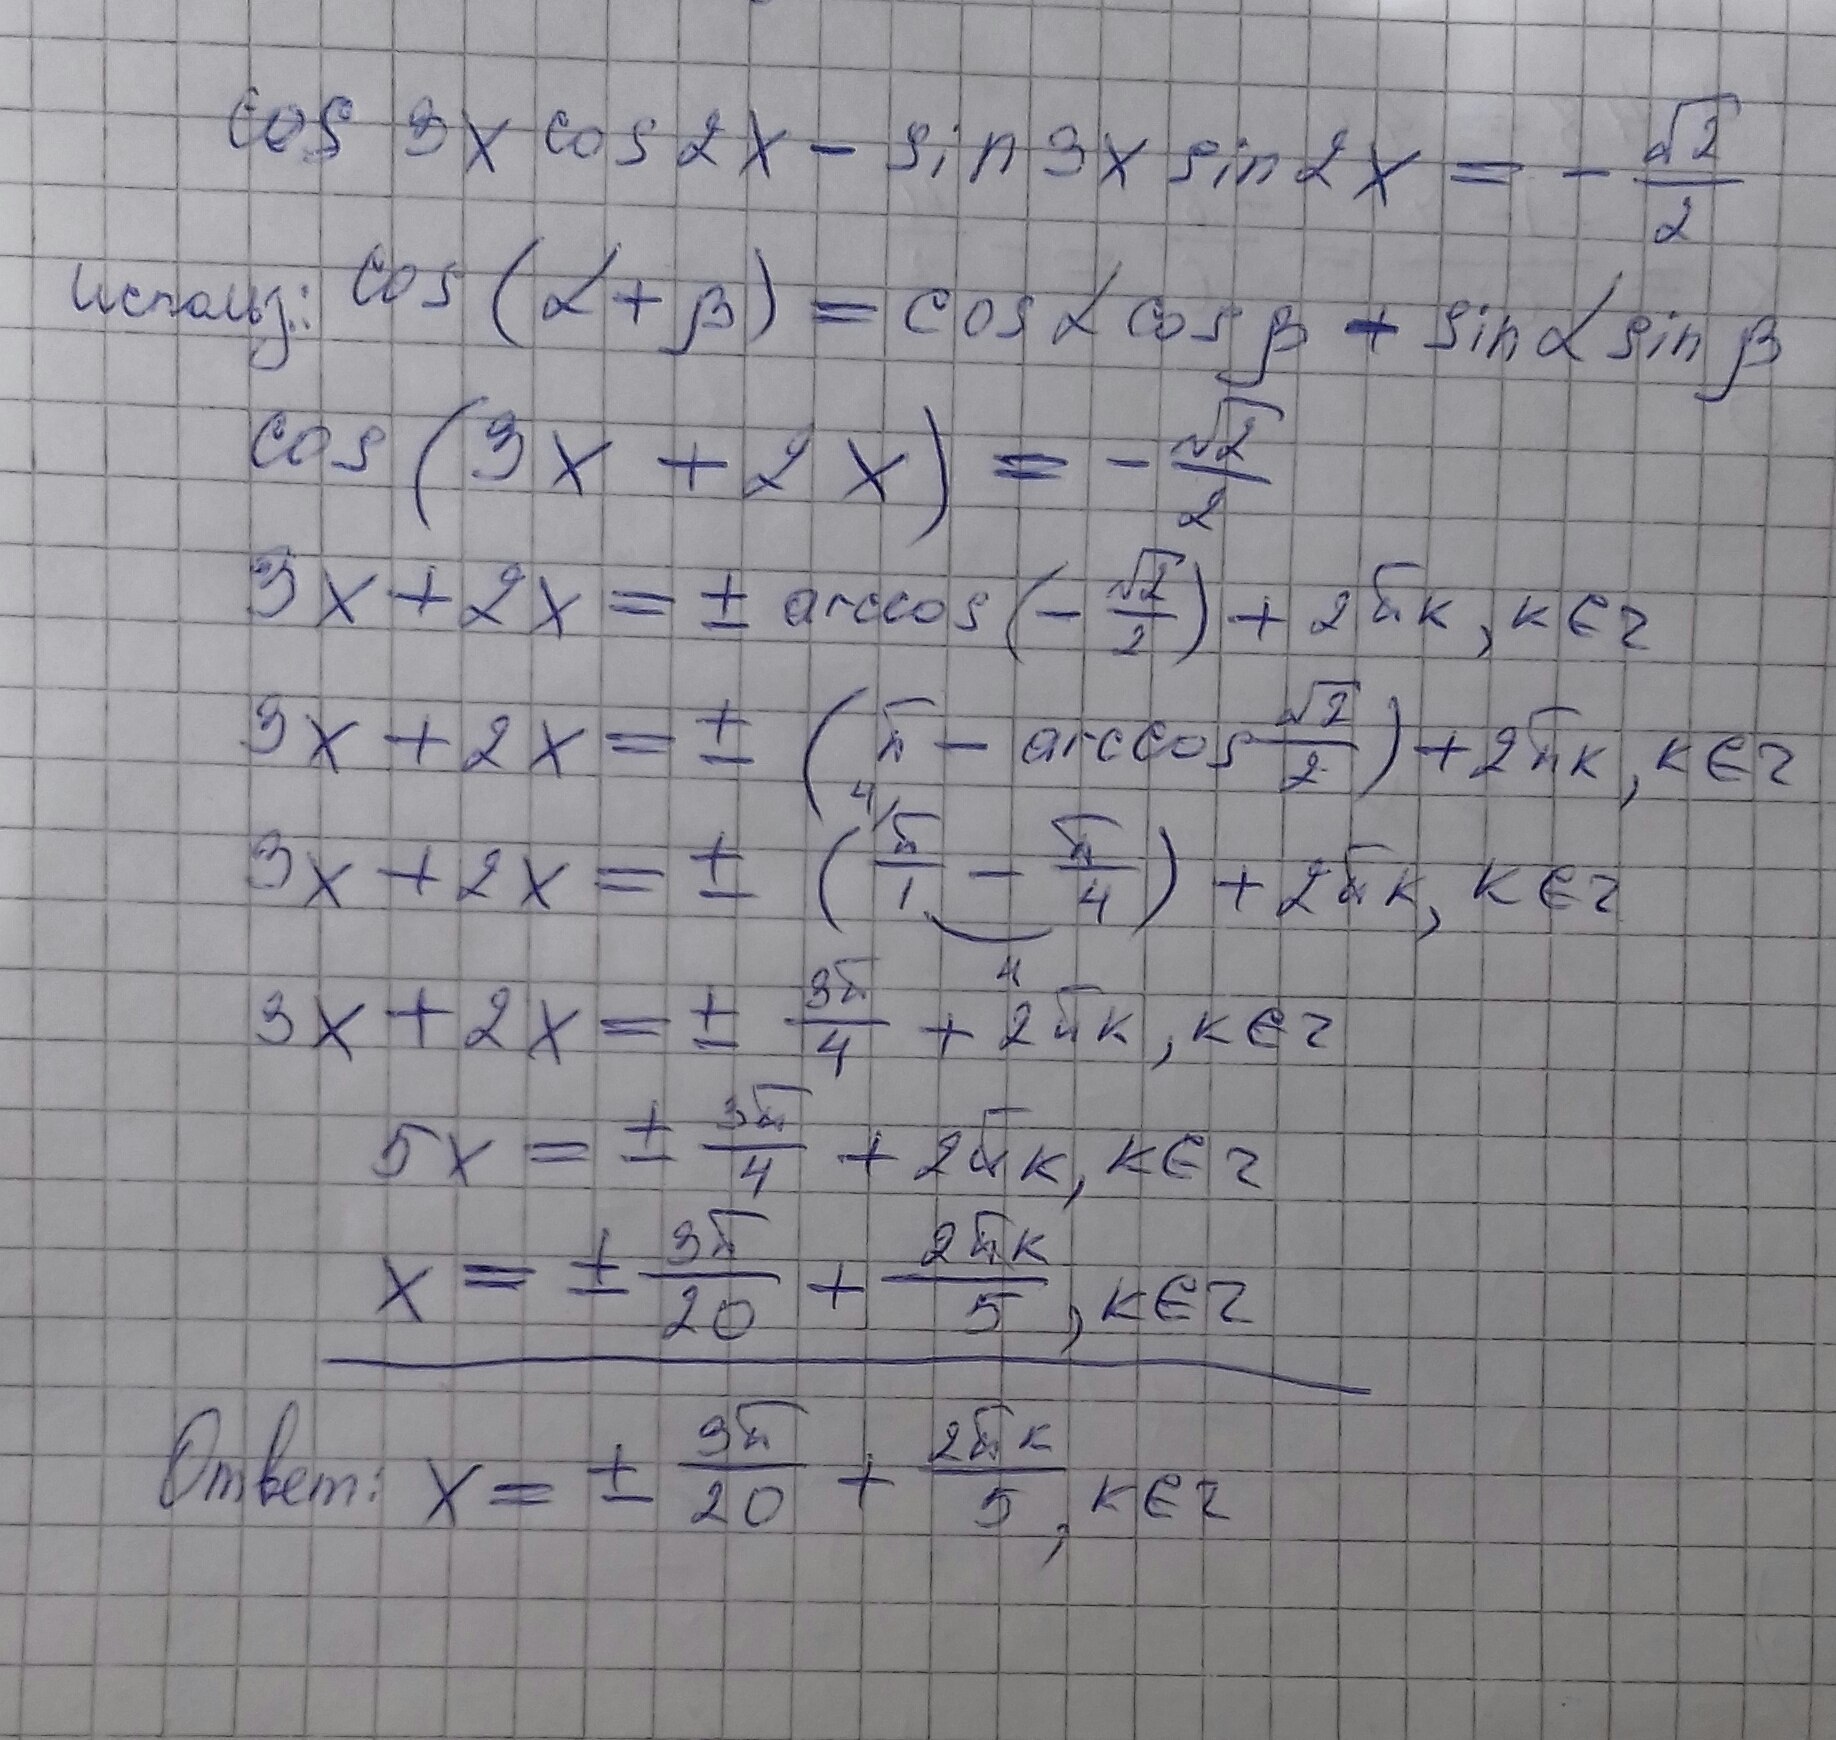 cos 3x cos 2x - sin 3x sin 2x = - √2/2
Использ.: cos (α + β) = cos α cos β + sin α sin β
cos (3x + 2x) = - √2/2
3x + 2x = ± arccos (- √2/2) + 2πк, к ∈ z
3x + 2x = ± (π - arccos √2/2) + 2πк, к ∈ z
3x + 2x = ± (4/ π/1 - π/4) + 2πк, к ∈ z
4
3x + 2x = ± 3π/4 + 2πк, к ∈ z
5x = ± 3π/4 + 2πк, к ∈ z
x = ± 3π/20 + 2πк/5, к ∈ z
Ответ: x = ± 3π/20 + 2πк/5, к ∈ z